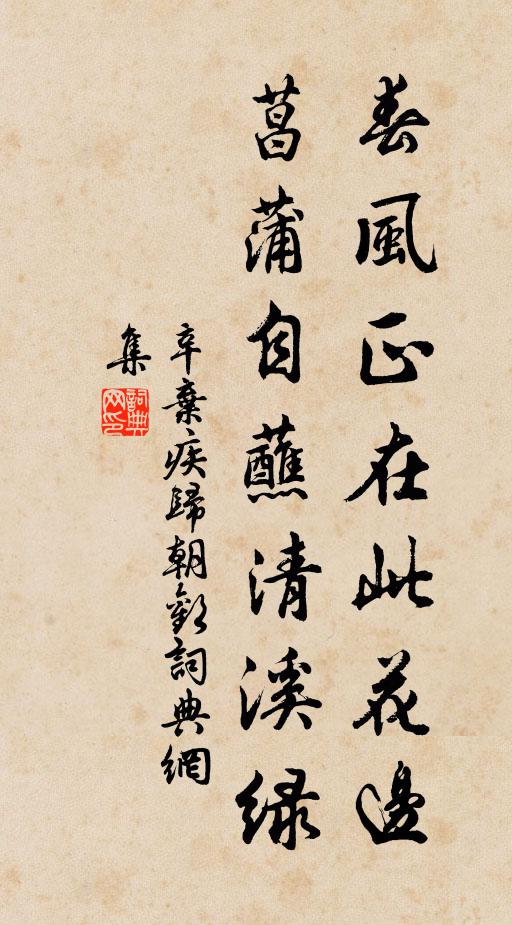 春風正在此花邊
菖蒲自蘸清溪綠
辛棄疾歸朝歡詞典網
集
詞典網印